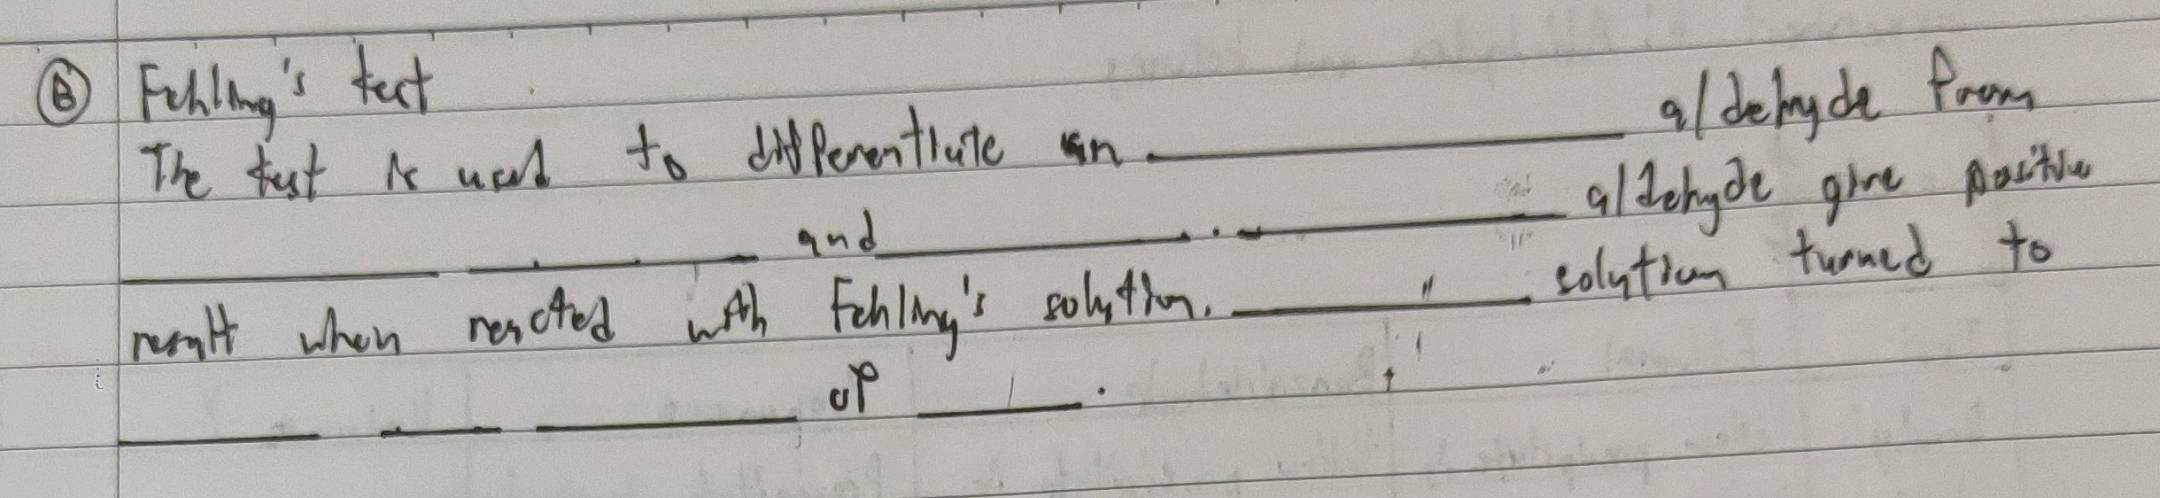 B Fehling's test
The test is used to differentiate an __________ aldehyde from
______ ______ and ______ . ______ aldehyde give positive
result when reacted with Fehling's solution. ______ solution turned to
____ ____ ______ of ____ .